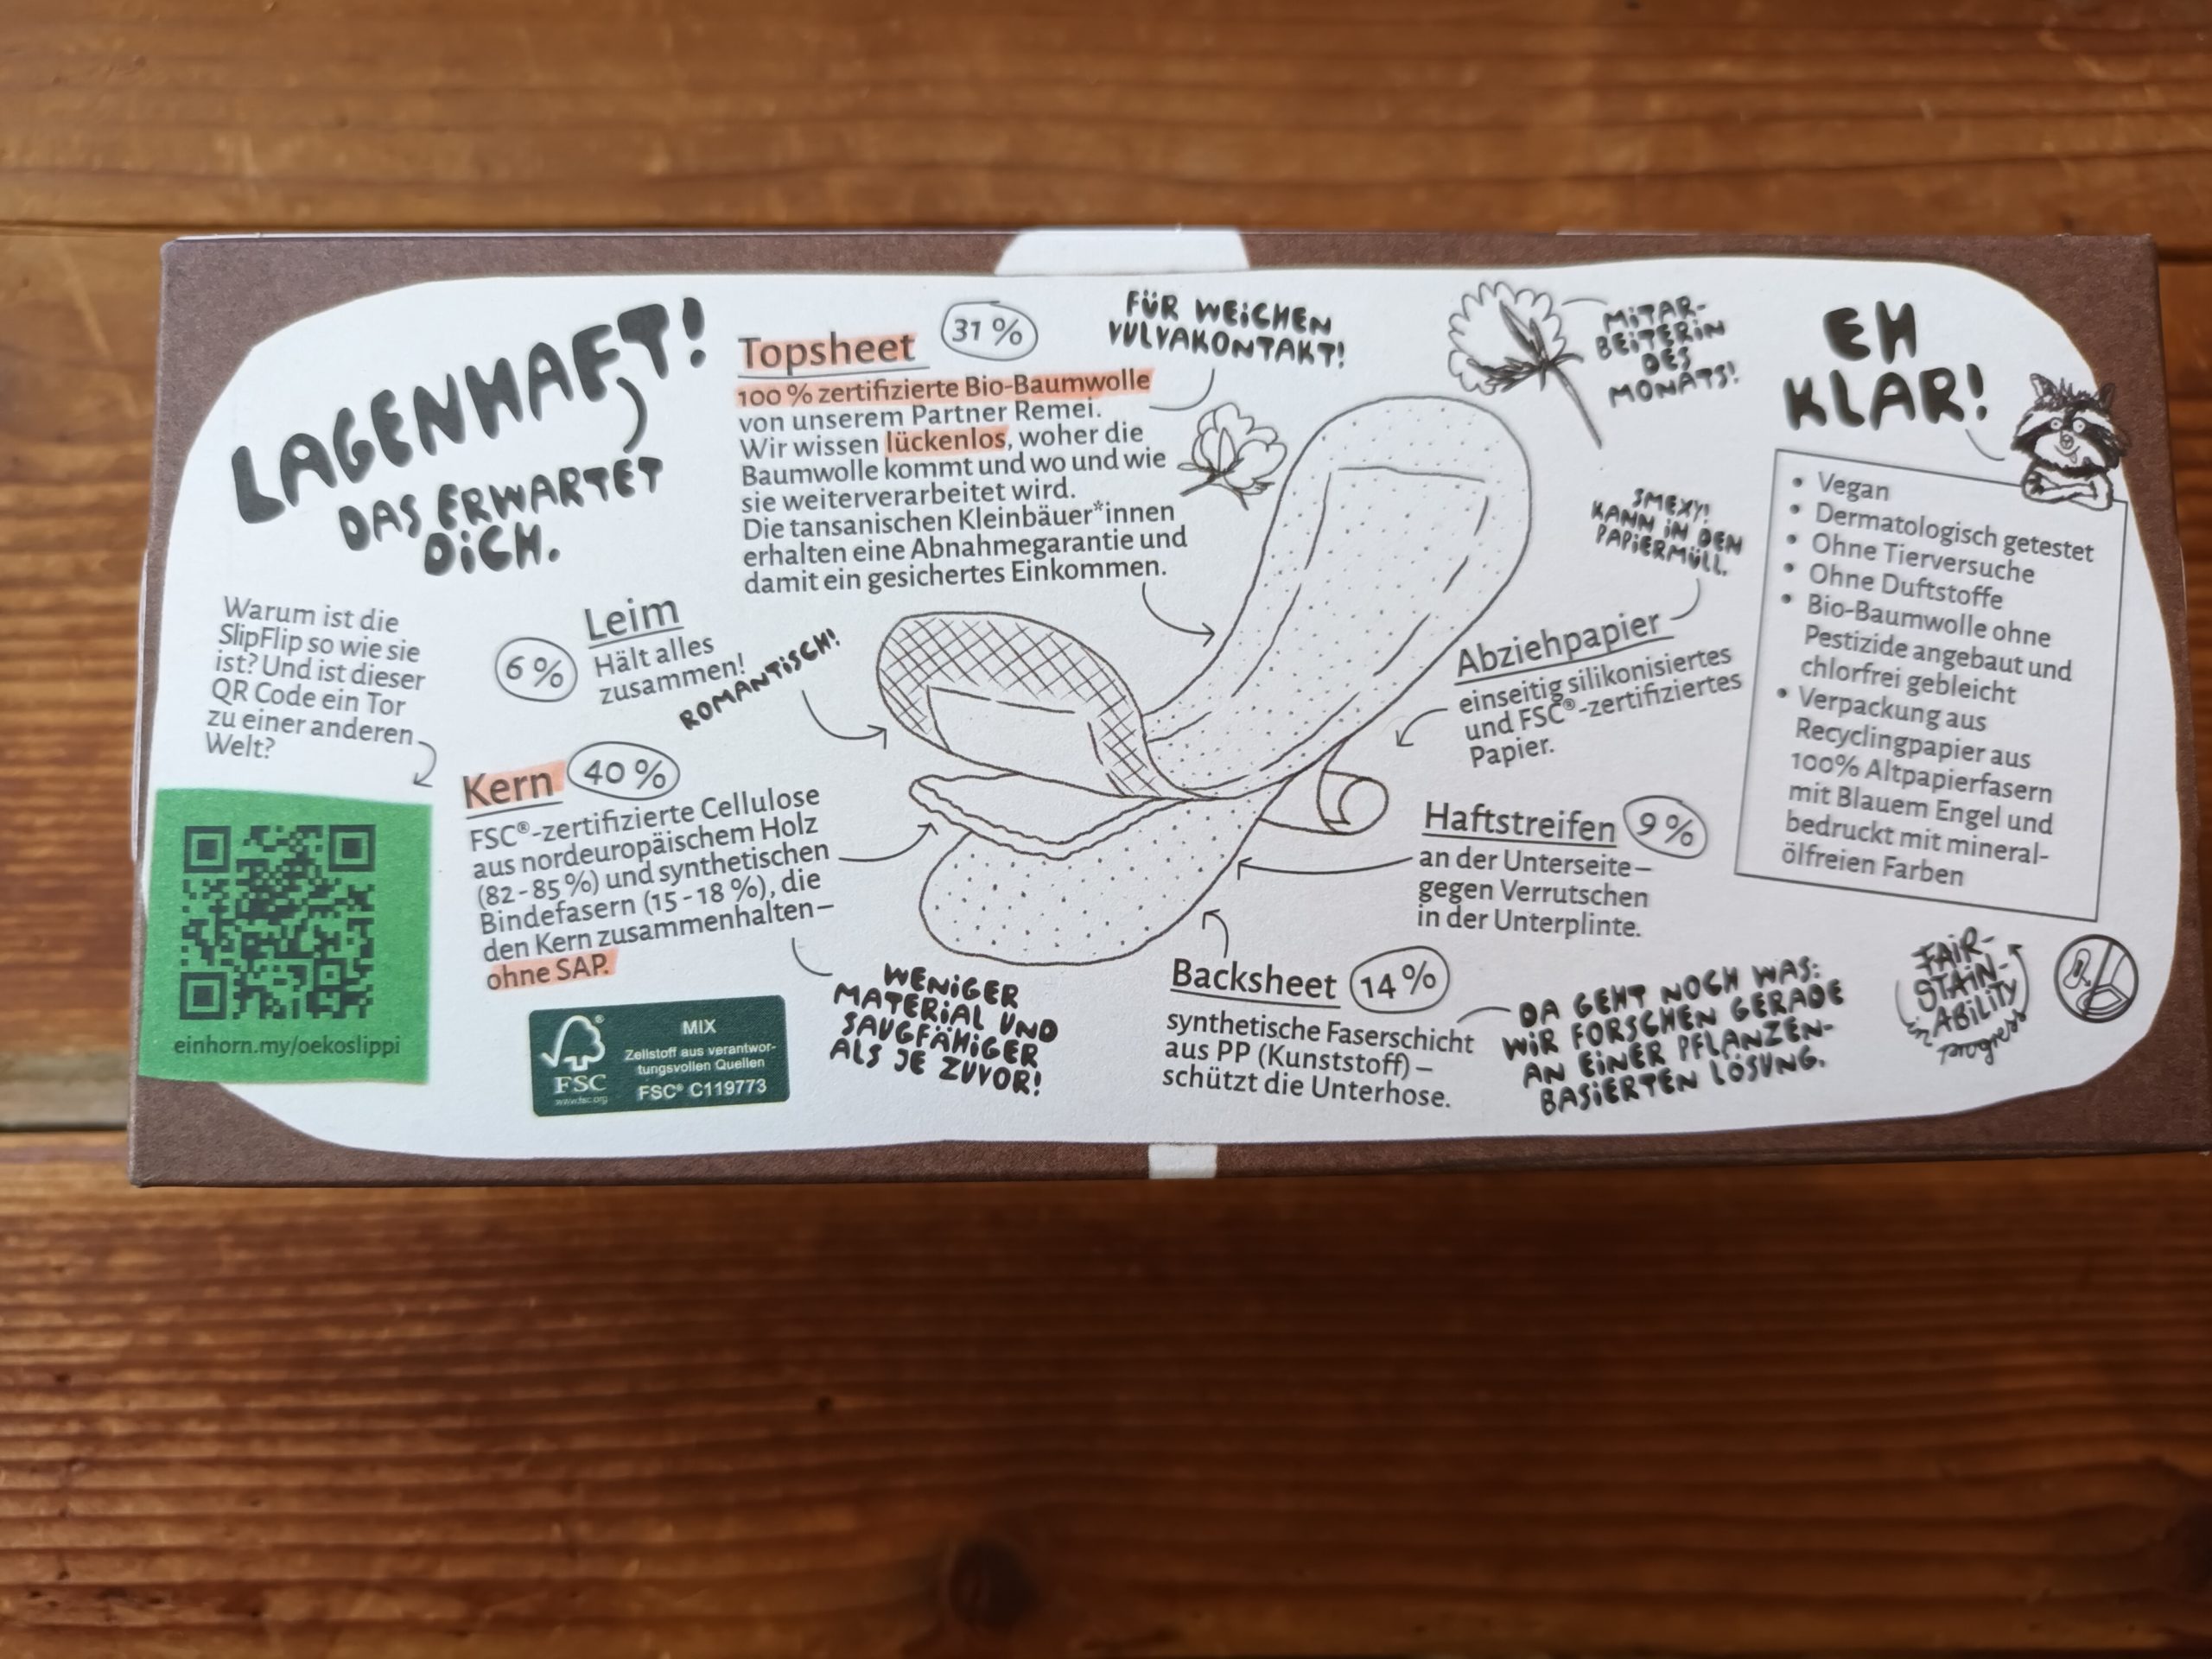 LAGENHAFT!
DAS ERWARTET
DICH.
Warum ist die
SlipFlip so wie sie
ist? Und ist dieser
QR Code ein Tor
zu einer anderen
Welt?
einhorn.my/oekoslippi
Topsheet 31 %
100 % zertifizierte Bio-Baumwolle
von unserem Partner Remei.
Wir wissen lückenlos, woher die
Baumwolle kommt und wo und wie
sie weiterverarbeitet wird.
Die tansanischen Kleinbäuer*innen
erhalten eine Abnahmegarantie und
damit ein gesichertes Einkommen.
FÜR WEICHEN
VULVAKONTAKT!
MITAR-
BEITERIN
DES
MONATS!
6 %
Leim
Hält alles
zusammen!
ROMANTISCH!
Kern 40 %
FSC®-zertifizierte Cellulose
aus nordeuropäischem Holz
(82-85 %) und synthetischen
Bindefasern (15-18 %), die
den Kern zusammenhalten–
ohne SAP.
WENIGER
MATERIAL UND
SAUGFÄHIGER
ALS JE ZUVOR!
®
FSC
www.fsc.org
MIX
Zellstoff aus verantwor-
tungsvollen Quellen
FSC® C119773
SMEXY!
KANN IN DEN
PAPIERMÜLL.
Abziehpapier
einseitig silikonisiertes
und FSC®-zertifiziertes
Papier.
Haftstreifen 9 %
an der Unterseite–
gegen Verrutschen
in der Unterplinte.
Backsheet 14 %
synthetische Faserschicht
aus PP (Kunststoff) –
schützt die Unterhose.
DA GEHT NOCH WAS:
WIR FORSCHEN GERADE
AN EINER PFLANZEN-
BASIERTEN LÖSUNG.
EH
KLAR!
• Vegan
• Dermatologisch getestet
• Ohne Tierversuche
• Ohne Duftstoffe
• Bio-Baumwolle ohne
Pestizide angebaut und
chlorfrei gebleicht
• Verpackung aus
Recyclingpapier aus
100% Altpapierfasern
mit Blauem Engel und
bedruckt mit mineral-
ölfreien Farben
FAIR-
STAIN-
ABILITY
in progress